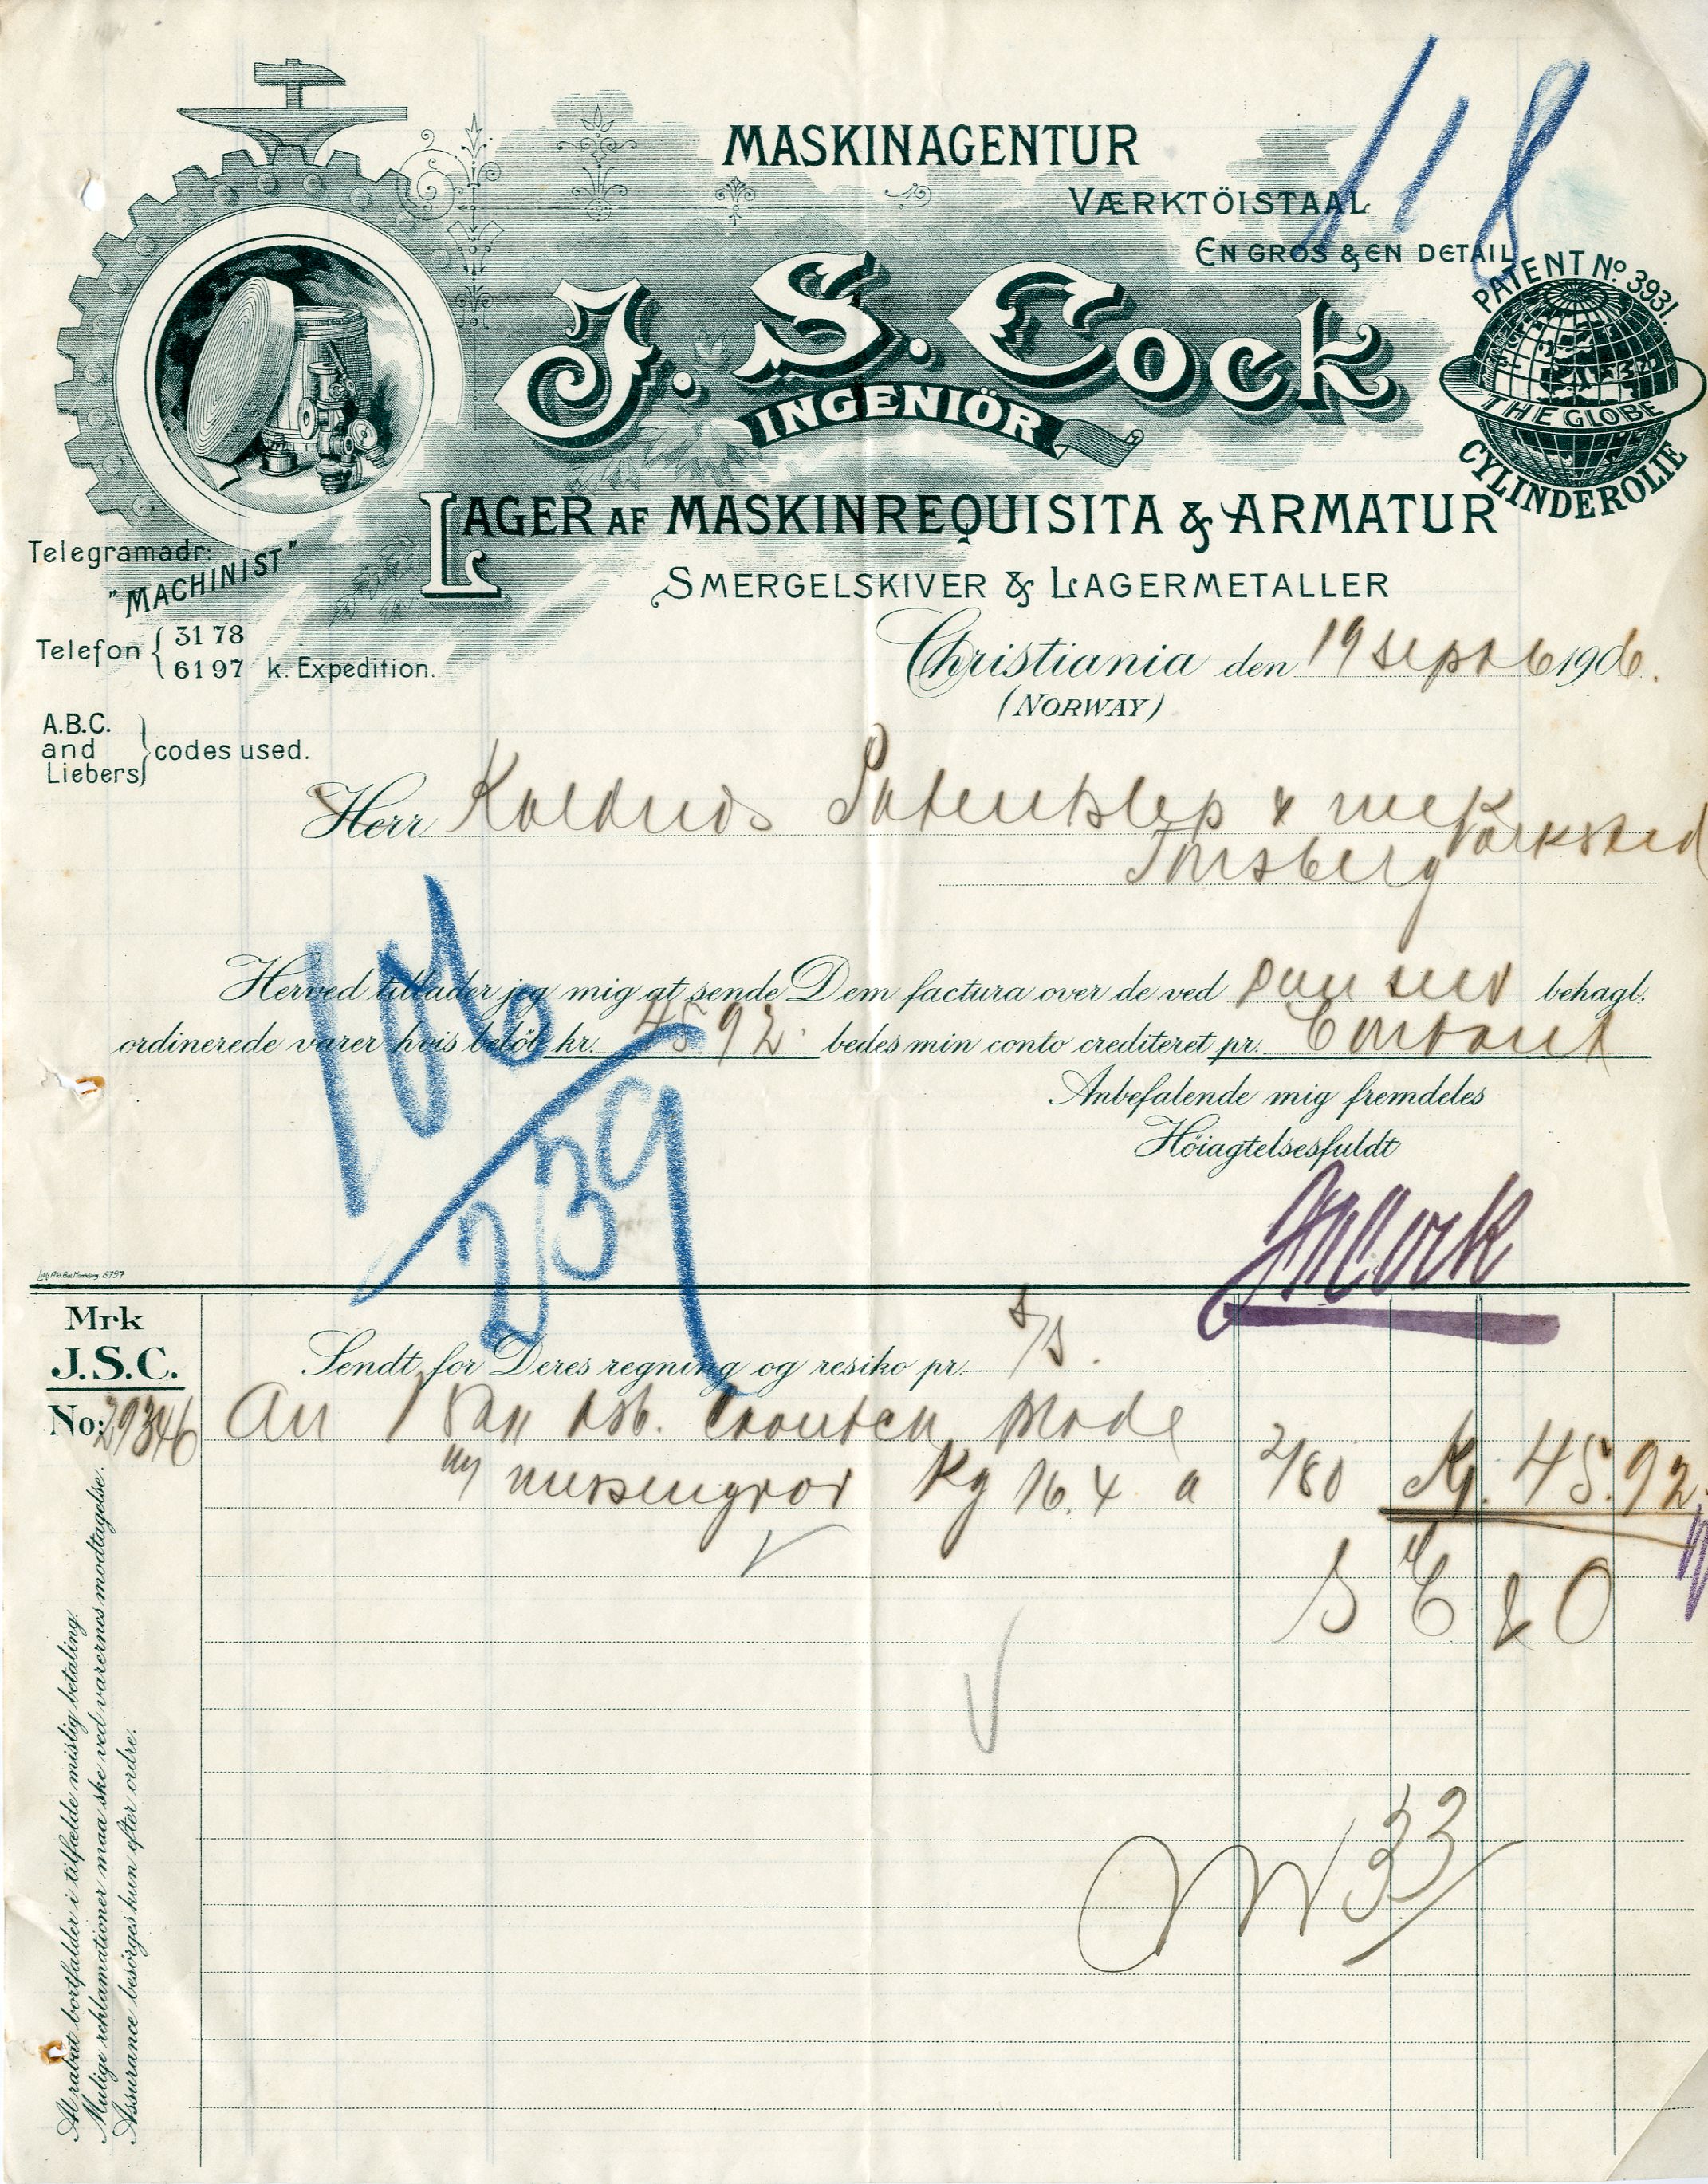 118
MASKINAGENTUR
VÆRKTÖISTAAL
EN GROS & EN DETAIL
J. S. Cock
INGENIÖR
PATENT No. 3931.
THE GLOBE
CYLINDEROLIE
LAGER AF MASKINREQUISITA & ARMATUR
SMERGELSKIVER & LAGERMETALLER
Telegramadr:
"MACHINIST"
Telefon { 31 78
61 97 k. Expedition.
A.B.C.
and
Liebers
codes used.
Christiania den 19 septb 1906.
(NORWAY)
Herr Kaldnes Patentslip & mek Værksted
Tønsberg
Herved tillader jeg mig at sende Dem factura over de ved behagl.
ordinerede varer hvis beløb kr. 45 92 bedes min conto crediteret pr. Contant
Anbefalende mig fremdeles
Höiagtelsesfuldt
JSCock
106
239
Mrk
J.S.C.
No: 29346
Sendt for Deres regning og resiko pr. S/S.
An 1
messingrør Kg 16.4 a 2/80 Kr. 45.92
S E & O
33
At rabat bortfalder i tilfælde mislig betaling.
Mulige reklamationer maa ske ved varernes modtagelse.
Assurance besörges kun efter ordre.